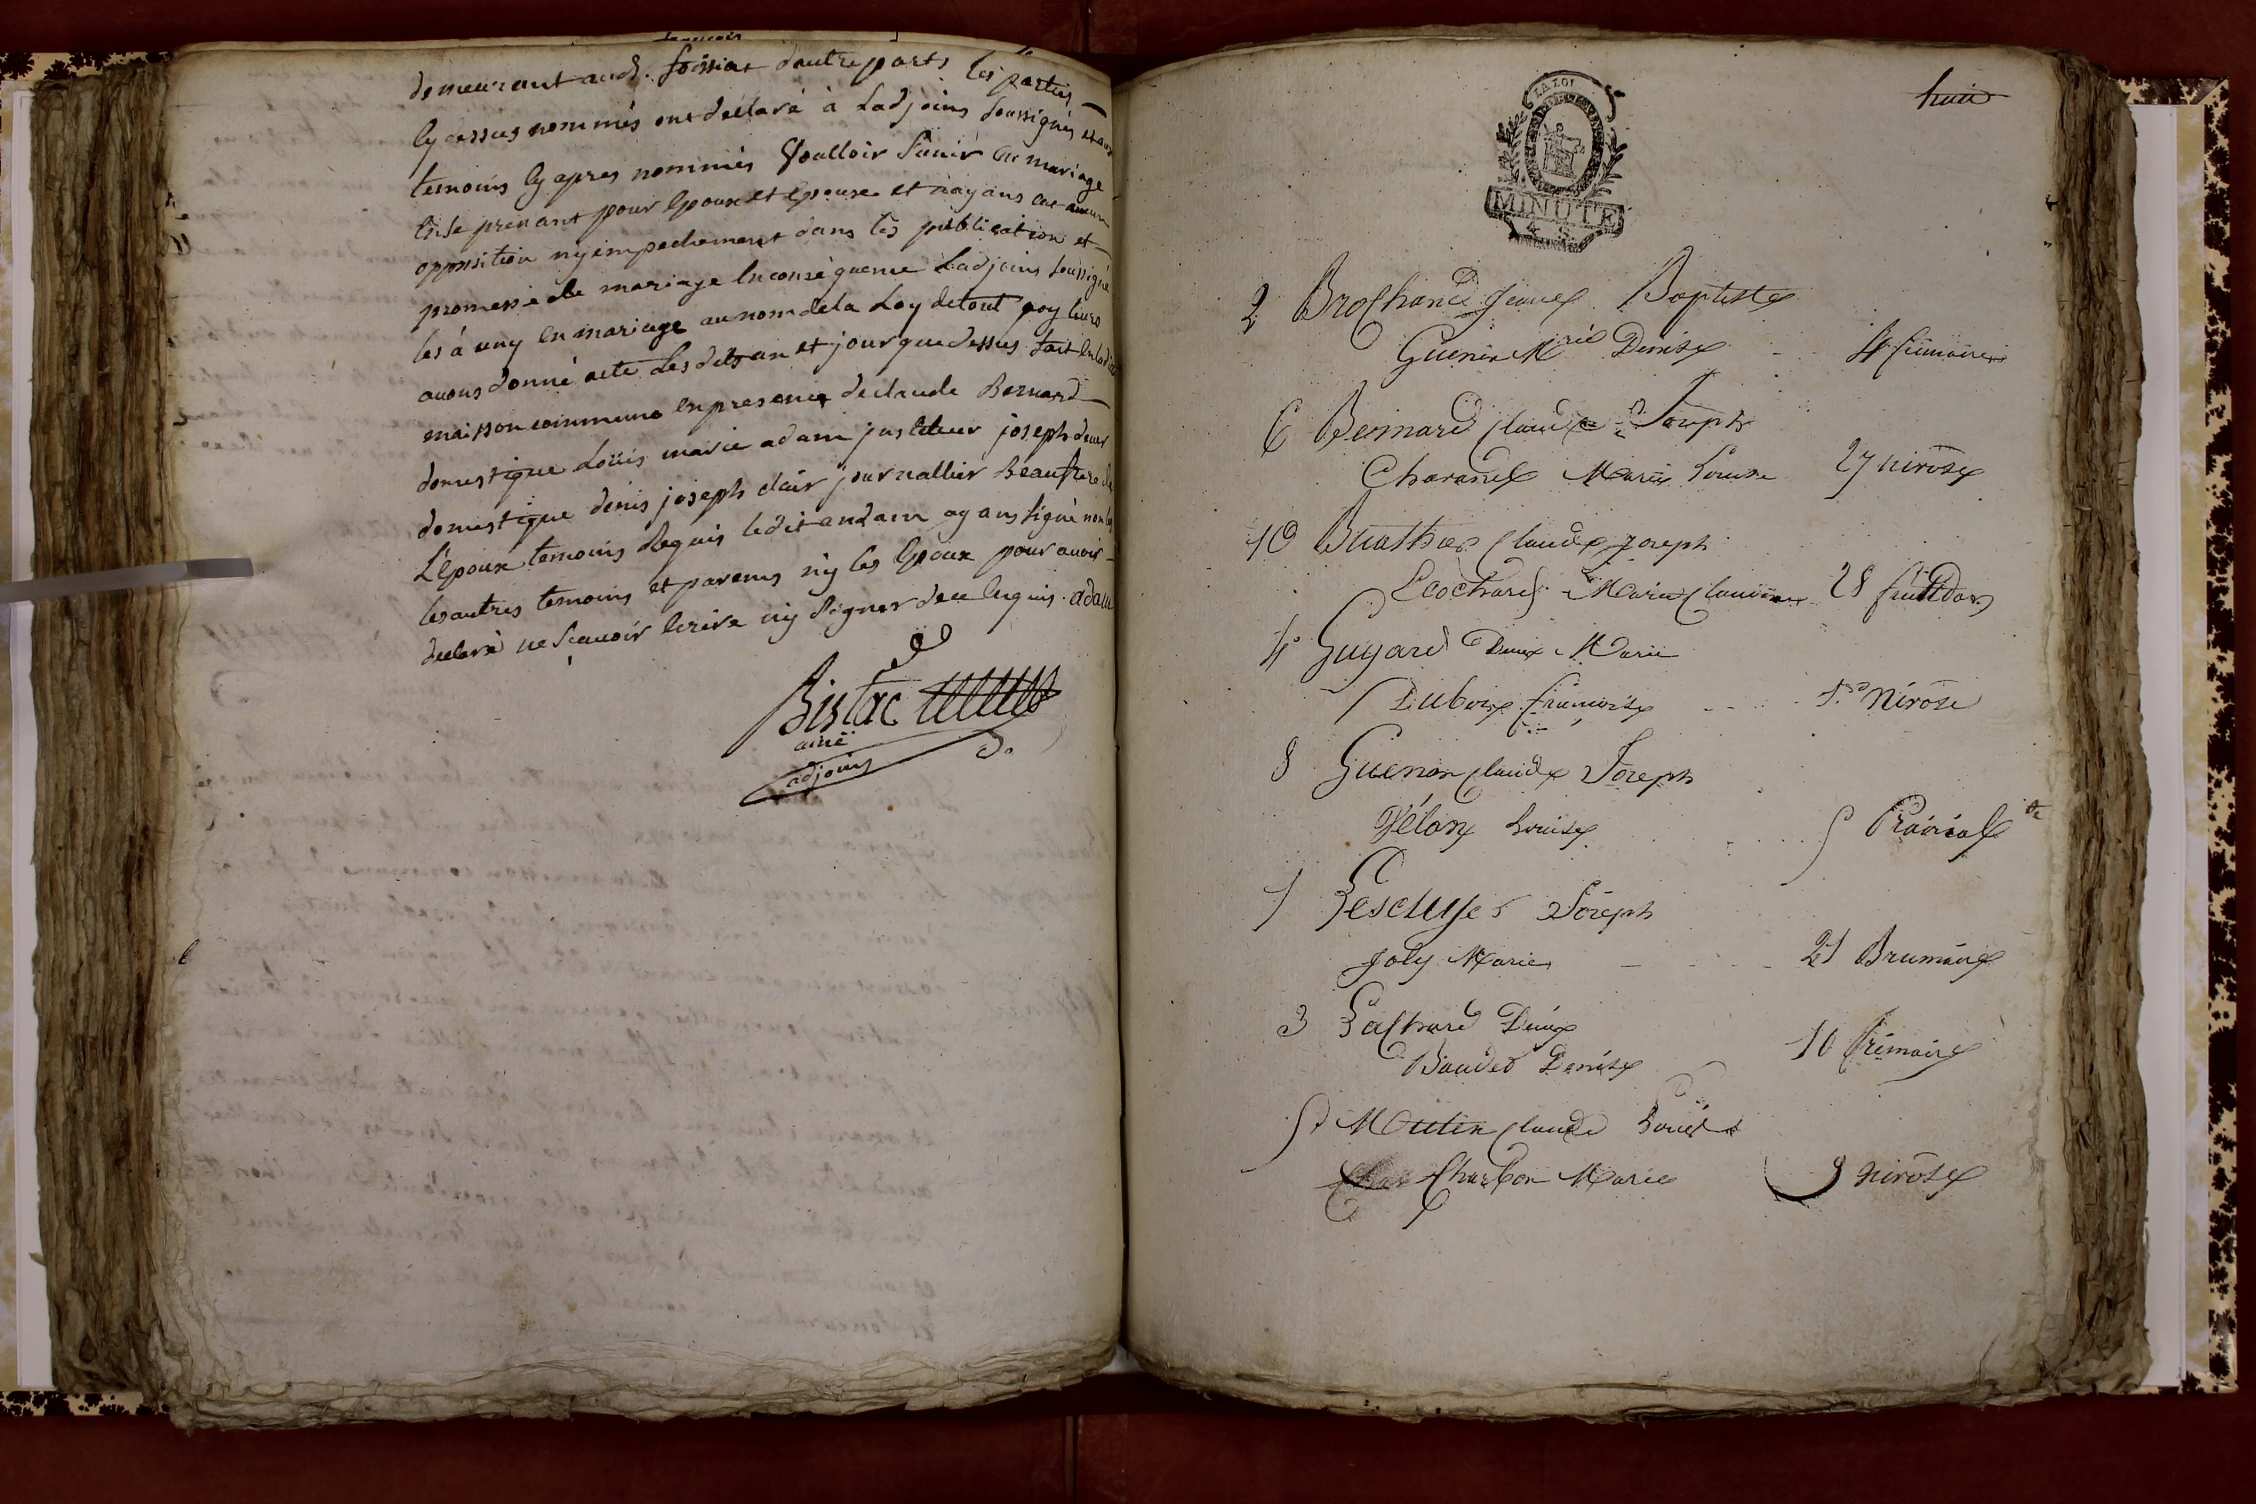 demeurant aud. foissiat dautre parts les parties
cy dessus nommés ont déclaré à Ladjoins soussignés et aux
temoins cy apres nommés Voulloir sunir en mariage
en se prenant pour Epoux et Epouse et nayans eu aucun
opposition ny empechement dans les publication et
promesse de mariage En conséquence Ladjoins soussigné
les à uny en mariage au nom de la Loy de tout quoy leurs
avons donné acte Les dits an et jour que dessus fait En lad.
maisson commune en presence de claude Bernard
domestique Louis marie adam justituer joseph
domestique denis joseph clair journallier Beaufrere de
L'Epoux temoins Requis ledit andam ayans signé non les
les autres temoins et parents ny les Epoux pour avoir
declaré ne scavoir Ecrire ny signer de ce Enquis. adam
Bistac
ainé
adjoins
huit
LA LOI
MINUTE
2 Brochand Jean Baptiste
Guerin Mrie Denise 4 frimaire
6 Bernard Claude Joseph
Charanel Marie Louise 27 nivose
10 Buathier Claude Joseph
Ecochard Marie Claudine 28 fructidor
4 Guyard Denis Marie
Dubois françoise 1er Nivose
8 Guenon Claude Joseph
Vélon Louise 5 Prairial
1 Lescuyer Joseph
Joly Marie 21 Brumaire
3 Lachard Denis
Baudet Denise 10 frimaire
5 Moutin Claude Louis
Charbon Marie 9 nivose